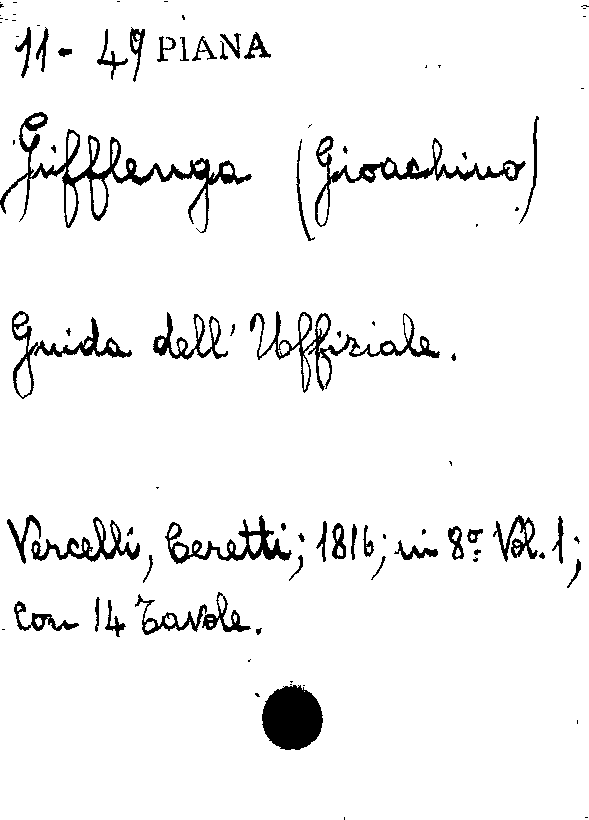 11 - 49 PIANA
Gifflenga (Gioachino)
Guida dell' Uffiziale.
Vercelli, Ceretti; 1816; in 8º Vol. 1;
con 14 Tavole.